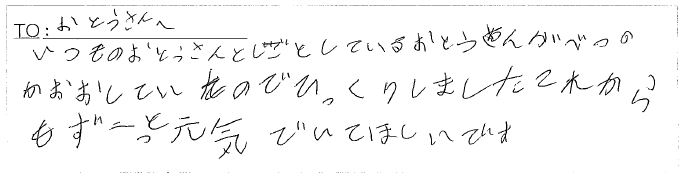 TO: おとうさんへ
いつものおとうさんとしごとしているおとうさんがべつの
かおおしていたのでびっくりしましたこれから
もずーっと元気でいてほしいです